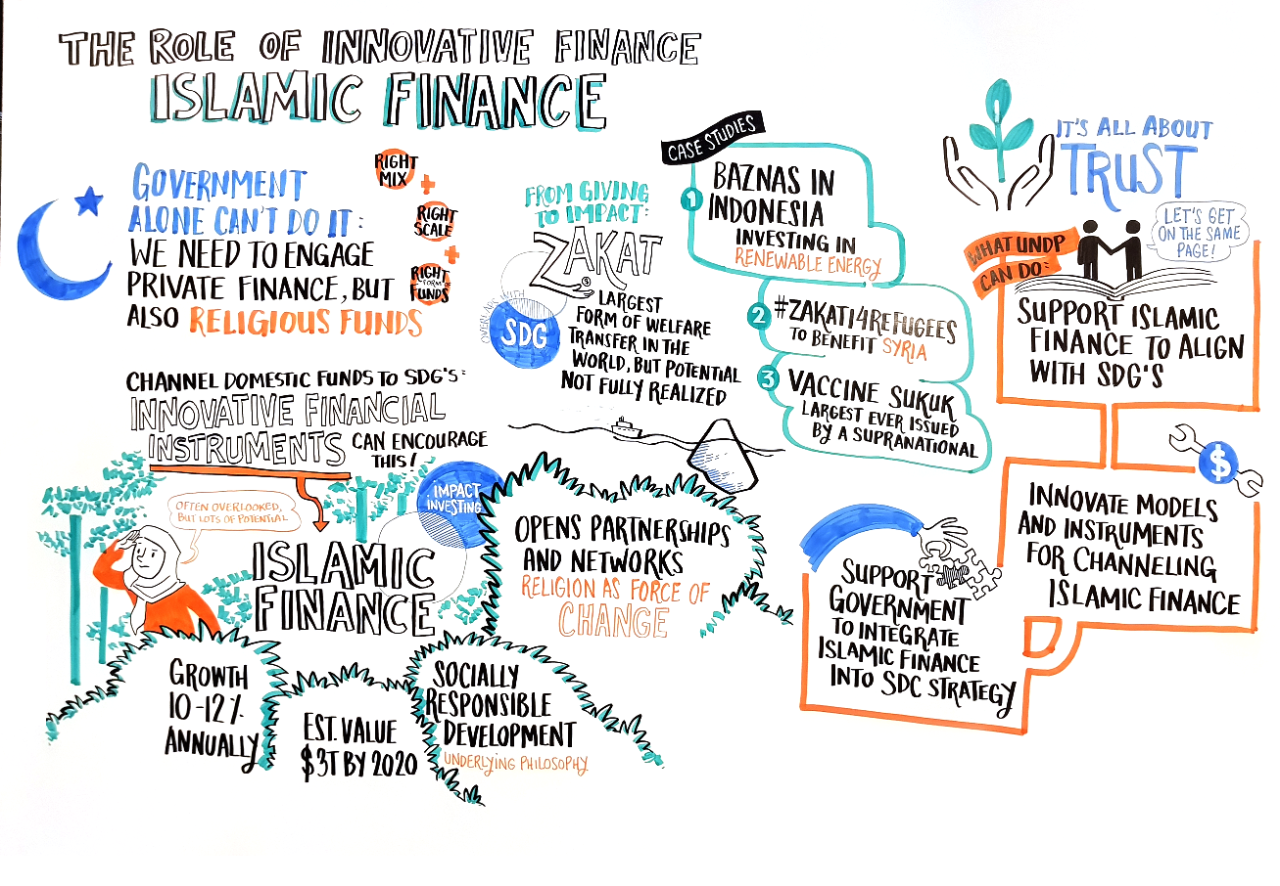 THE ROLE OF INNOVATIVE FINANCE
ISLAMIC FINANCE
GOVERNMENT
ALONE CAN'T DO IT:
WE NEED TO ENGAGE
PRIVATE FINANCE, BUT
ALSO RELIGIOUS FUNDS
RIGHT
MIX
+
RIGHT
SCALE
+
RIGHT
FORM
FUNDS
CHANNEL DOMESTIC FUNDS TO SDG'S:
INNOVATIVE FINANCIAL
INSTRUMENTS CAN ENCOURAGE
THIS!
OFTEN OVERLOOKED,
BUT LOTS OF POTENTIAL
IMPACT
INVESTING
ISLAMIC
FINANCE
GROWTH
10-12%
ANNUALLY
EST. VALUE
$3T BY 2020
SOCIALLY
RESPONSIBLE
DEVELOPMENT
UNDERLYING PHILOSOPHY
OPENS PARTNERSHIPS
AND NETWORKS
RELIGION AS FORCE OF
CHANGE
FROM GIVING
TO IMPACT:
ZAKAT
OVERLAPS WITH
SDG
LARGEST
FORM OF WELFARE
TRANSFER IN THE
WORLD, BUT POTENTIAL
NOT FULLY REALIZED
CASE STUDIES
1
BAZNAS IN
INDONESIA
INVESTING IN
RENEWABLE ENERGY
2
#ZAKAT14REFUGEES
TO BENEFIT SYRIA
3
VACCINE SUKUK
LARGEST EVER ISSUED
BY A SUPRANATIONAL
IT'S ALL ABOUT
TRUST
LET'S GET
ON THE SAME
PAGE!
WHAT UNDP
CAN DO:
SUPPORT ISLAMIC
FINANCE TO ALIGN
WITH SDG'S
$
INNOVATE MODELS
AND INSTRUMENTS
FOR CHANNELING
ISLAMIC FINANCE
SUPPORT
GOVERNMENT
TO INTEGRATE
ISLAMIC FINANCE
INTO SDC STRATEGY